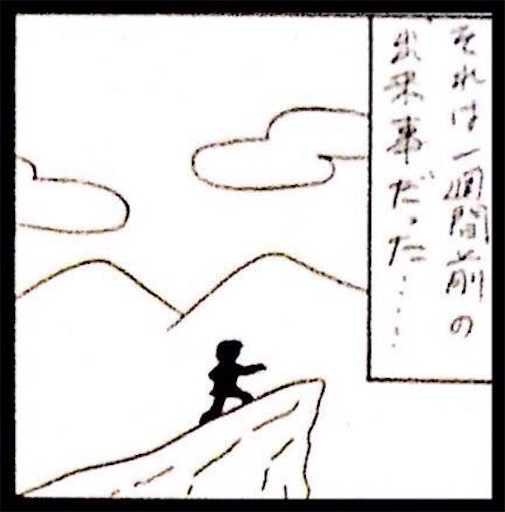 それは一週間前の
出来事だった……